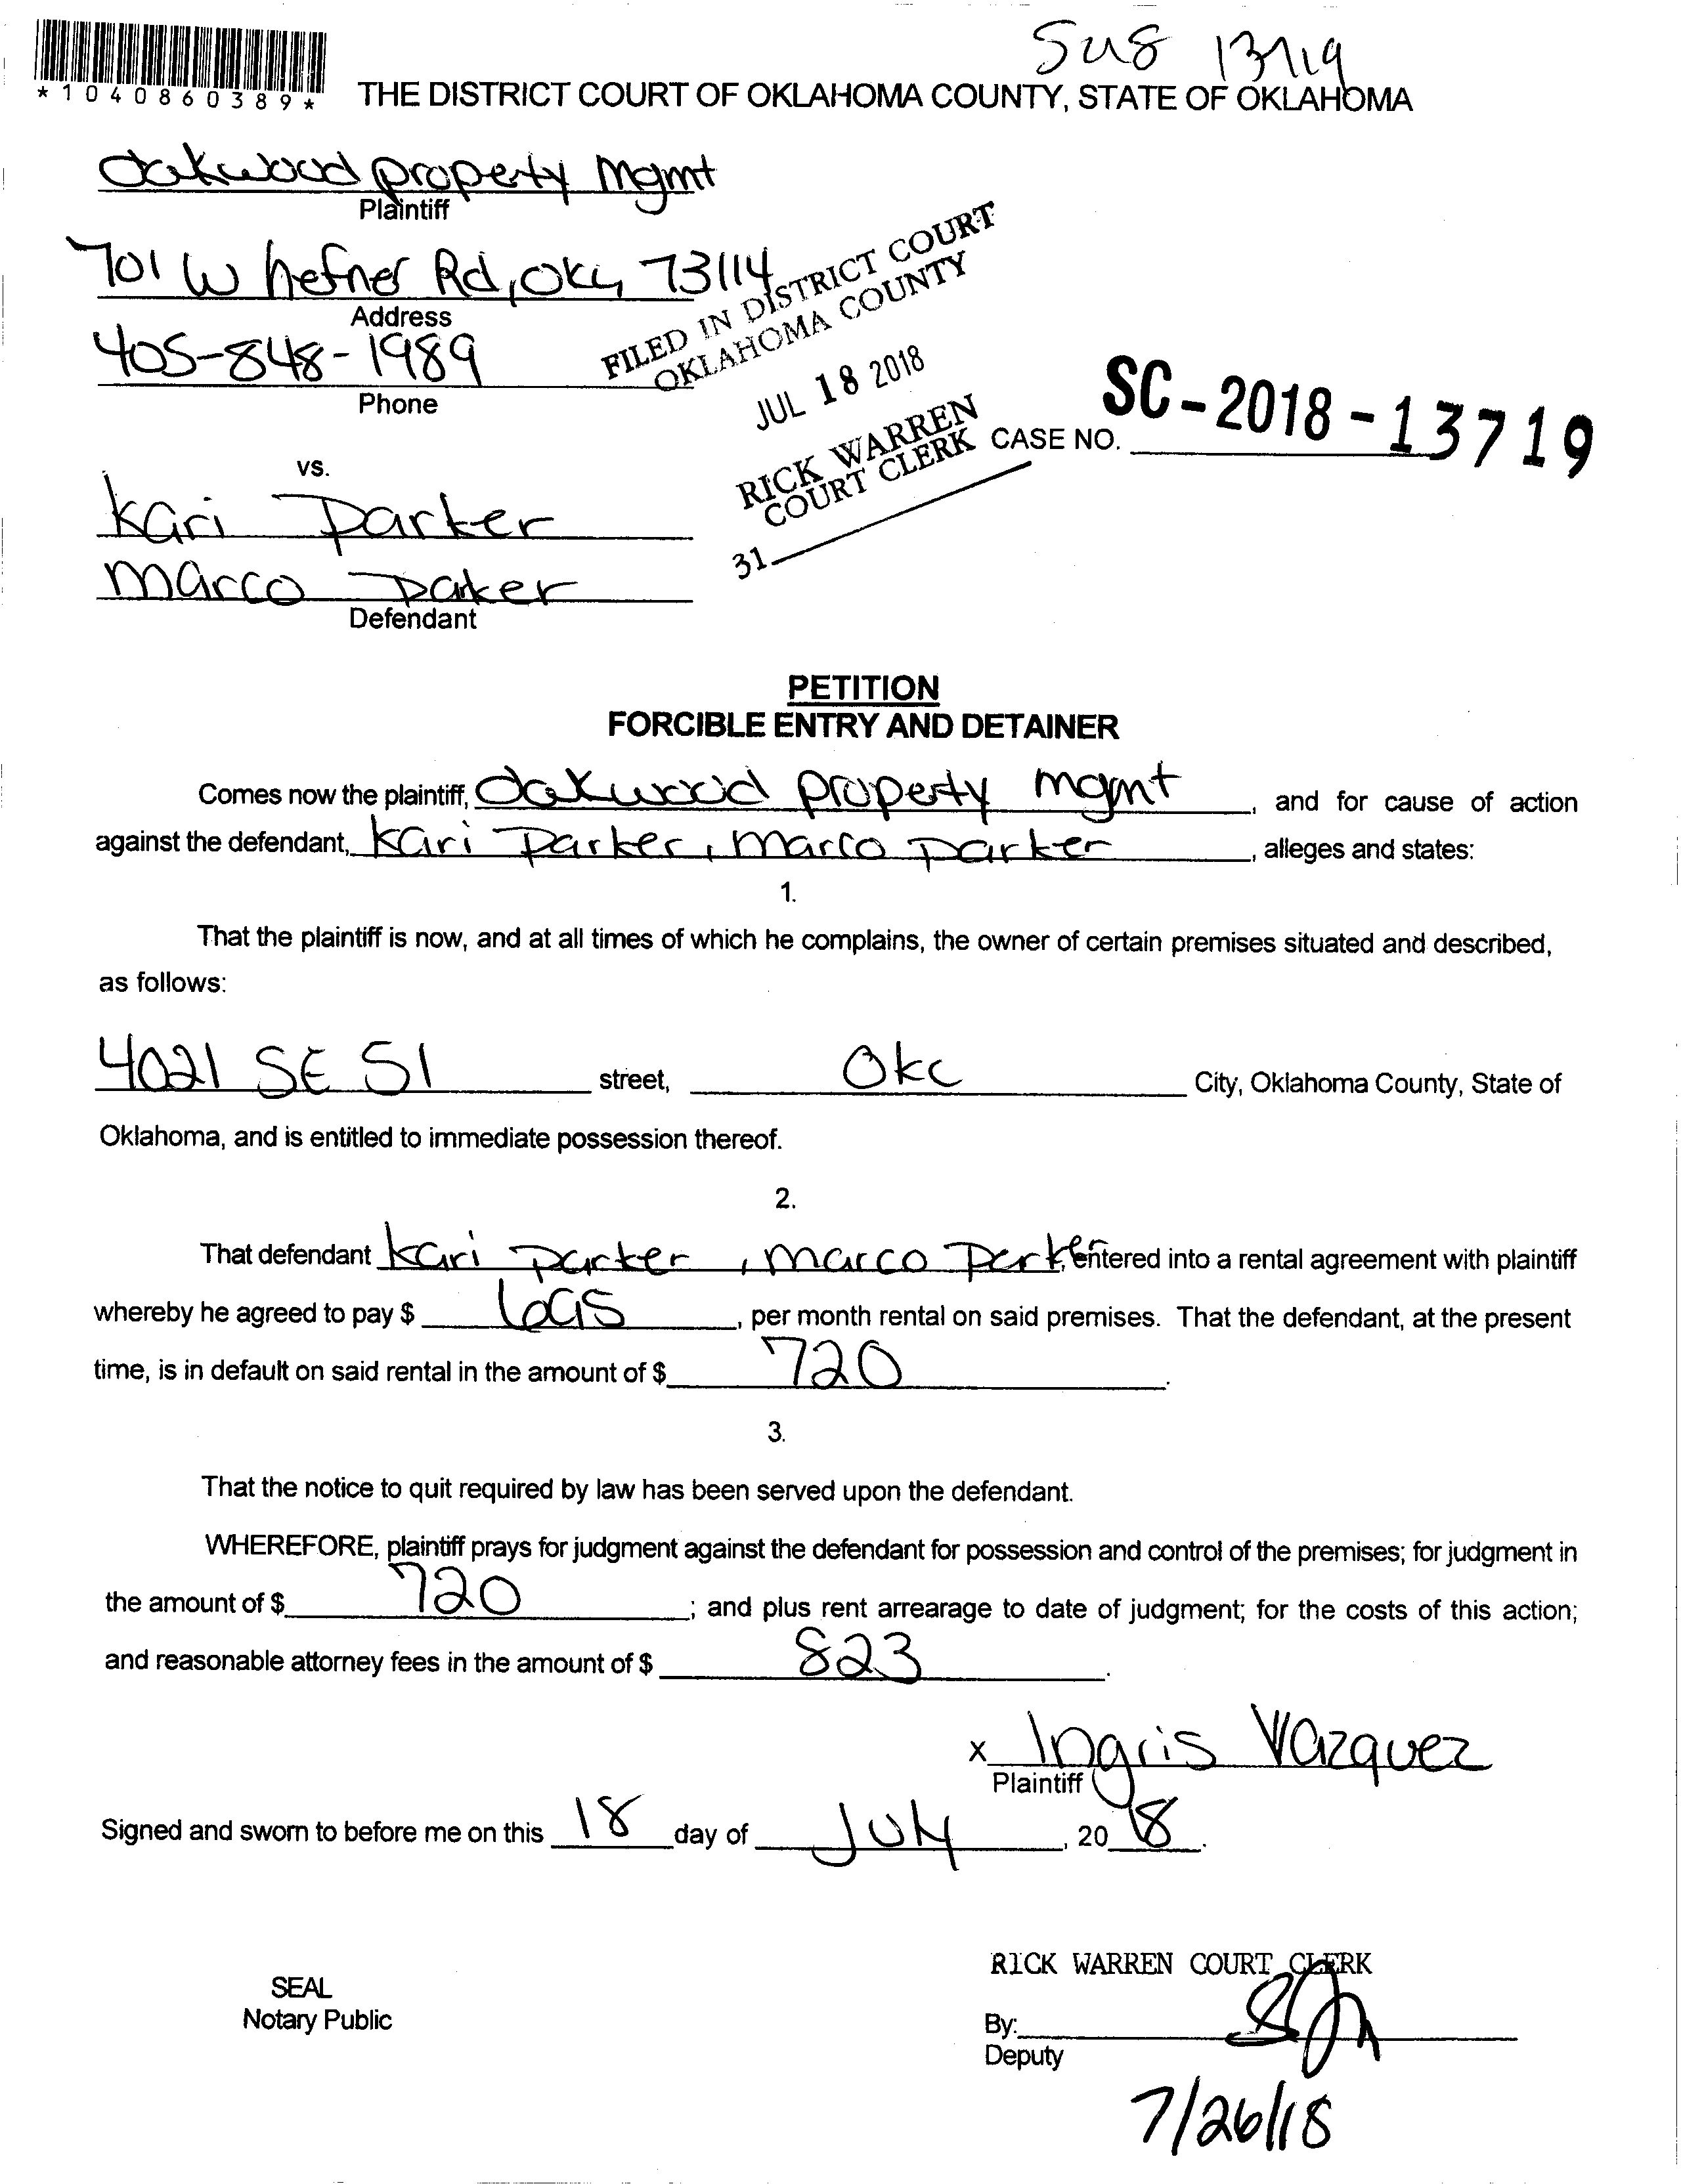 SUS 13719
*1040860389*
THE DISTRICT COURT OF OKLAHOMA COUNTY, STATE OF OKLAHOMA
Oakwood property Mgmt
Plaintiff
701 W hefner Rd, OKC, 73114
Address
405-848-1989
Phone
FILED IN DISTRICT COURT
OKLAHOMA COUNTY
JUL 18 2018
RICK WARREN
COURT CLERK
31
CASE NO. SC-2018-13719
vs.
Kari Parker
Marco Parker
Defendant
PETITION
FORCIBLE ENTRY AND DETAINER
Comes now the plaintiff, Oakwood property mgmt, and for cause of action
against the defendant, Kari Parker, Marco Parker, alleges and states:
1.
That the plaintiff is now, and at all times of which he complains, the owner of certain premises situated and described,
as follows:
4021 SE 51 street, OKC City, Oklahoma County, State of
Oklahoma, and is entitled to immediate possession thereof.
2.
That defendant Kari Parker, Marco Parker, entered into a rental agreement with plaintiff
whereby he agreed to pay $, per month rental on said premises. That the defendant, at the present
time, is in default on said rental in the amount of $ 720.
3.
That the notice to quit required by law has been served upon the defendant.
WHEREFORE, plaintiff prays for judgment against the defendant for possession and control of the premises; for judgment in
the amount of $ 720; and plus rent arrearage to date of judgment; for the costs of this action;
and reasonable attorney fees in the amount of $ 823.
x Ingris Vazquez
Plaintiff
Signed and sworn to before me on this 18 day of July, 20 18.
RICK WARREN COURT CLERK
SEAL
Notary Public
By:
Deputy
7/26/18